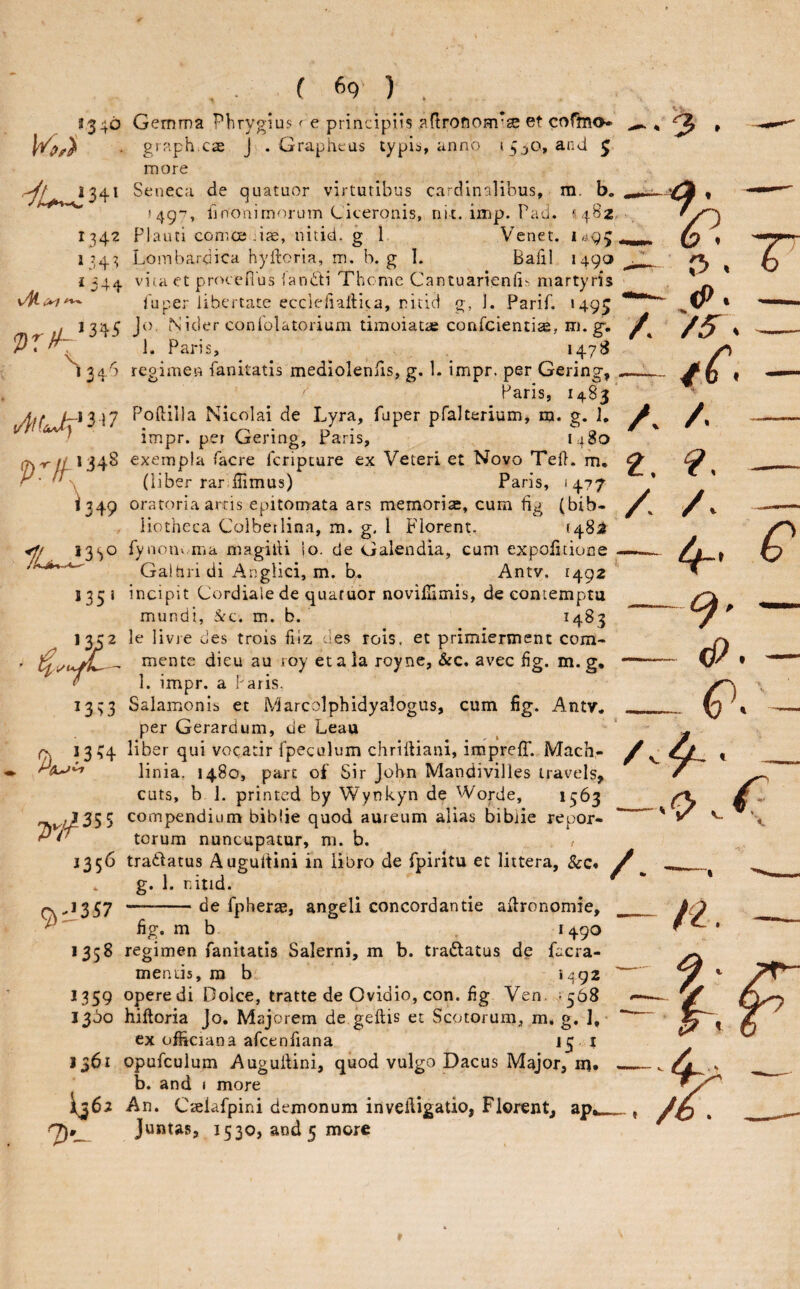 ( 69 )
1340 Gemma Phrygius de principiis aſtronomiæ et coſmo-
graphicæ J. Grapheus typis, anno 1530, and 5
more
1341 Seneca de quatuor virtutibus cardinalibus, m. b. 9.
1497, ſinonimorum Ciceronis, nit. imp. Pad. 1482
1342 Plauti comœdiæ, nitid. g. l. Venet. 1495 6.
1343 Lombardica hyſtoria, m. b. g. l. Baſil. 1490 3. 6
1344 vita et proceſſus ſancti Thome Cantuarienſis martyris
ſuper libertate eccleſiaſtica, nitid g. l. Pariſ. 1495
1345 Jo. Nider conſolatorium timoiatæ conſcientiæ, m. g. /. 15
l. Paris, 1478
1346 regimen ſanitatis mediolenſis, g. l. impr. per Gering, 16.
Paris, 1483
1347 Poſtilla Nicolai de Lyra, ſuper pſalterium, m. g. l. /. /.
impr. per Gering, Paris, 1480
1348 exempla ſacre ſcripture ex Veteri et Novo Teſt. m. 2. 2.
(liber rariſſimus) Paris, 1477
1349 oratoria artis epitomata ars memoriæ, cum fig (bib- /. /.
liotheca Colbertina, m. g. l Florent. 1482
1350 ſynonoma magiſti Jo. de Galendia, cum expoſitione 4. 6
Galfiri di Anglici, m. b. Antv. 1492
1351 incipit Cordiale de quatuor noviſſimis, de contemptu
mundi, &c. m. b. 1483 9.
1352 le livre des trois filz des rois, et primierment com-
mente dieu au roy et a la royne, &c. avec fig. m. g.
l. impr. a Paris.
1353 Salamonis et Marcolphidyalogus, cum fig. Antv. 6.
per Gerardum, de Leau
1354 liber qui vocatir ſpeculum chriſtiani, impreſſ. Mach- /. 4.
linia. 1480, part of Sir John Mandivilles travels,
cuts, b l. printed by Wynkyn de Worde, 1563
1355 compendium biblie quod aureum alias biblie repor-
torum nuncupatur, m. b.
1356 tractatus Auguſtini in libro de ſpiritu et littera, &c. /.
g. l. nitid.
1357 ——— de ſpheræ, angeli concordantie aſtronomie, 12.
fig. m b 1490
1358 regimen ſanitatis Salerni, m b. tractatus de ſacra-
mentis, m b 1492 9.
1359 opere di Dolce, tratte de Ovidio, con. fig Ven. 1568
1360 hiſtoria Jo. Majorem de geſtis et Scotorum, m. g. l,
ex officiana aſcenſiana
1361 opuſculum Auguſtini, quod vulgo Dacus Major, m. 4.
b. and 1 more
1362 An. Cæſalpini demonum inveſtigatio, Florent, ap. 16.
Juntas, 1530, and 5 more